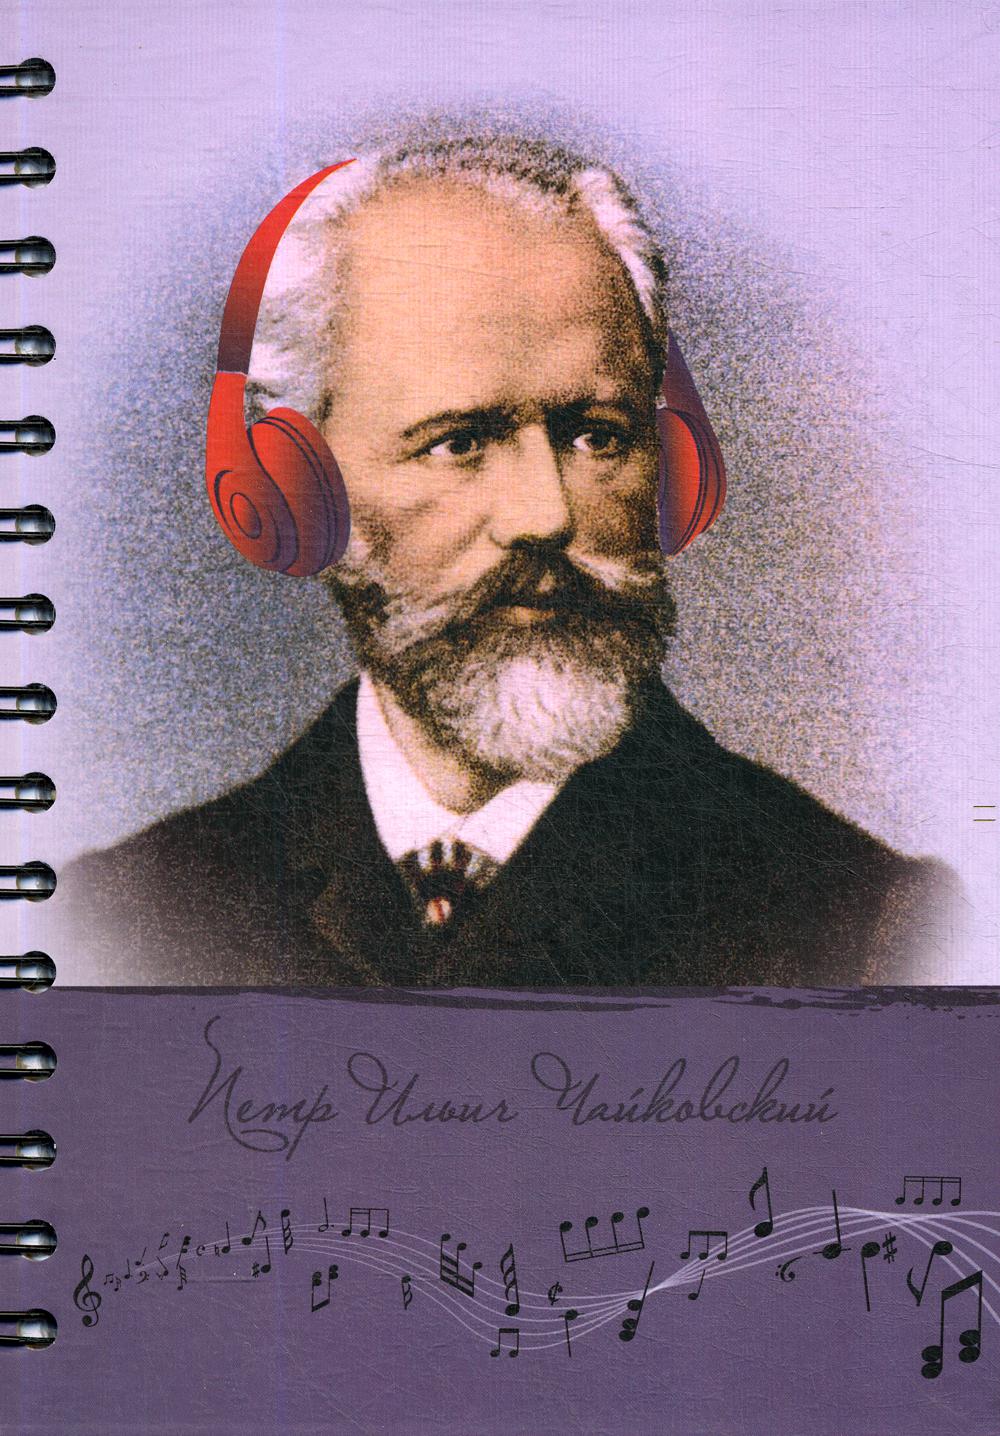 Петр Ильич Чайковский